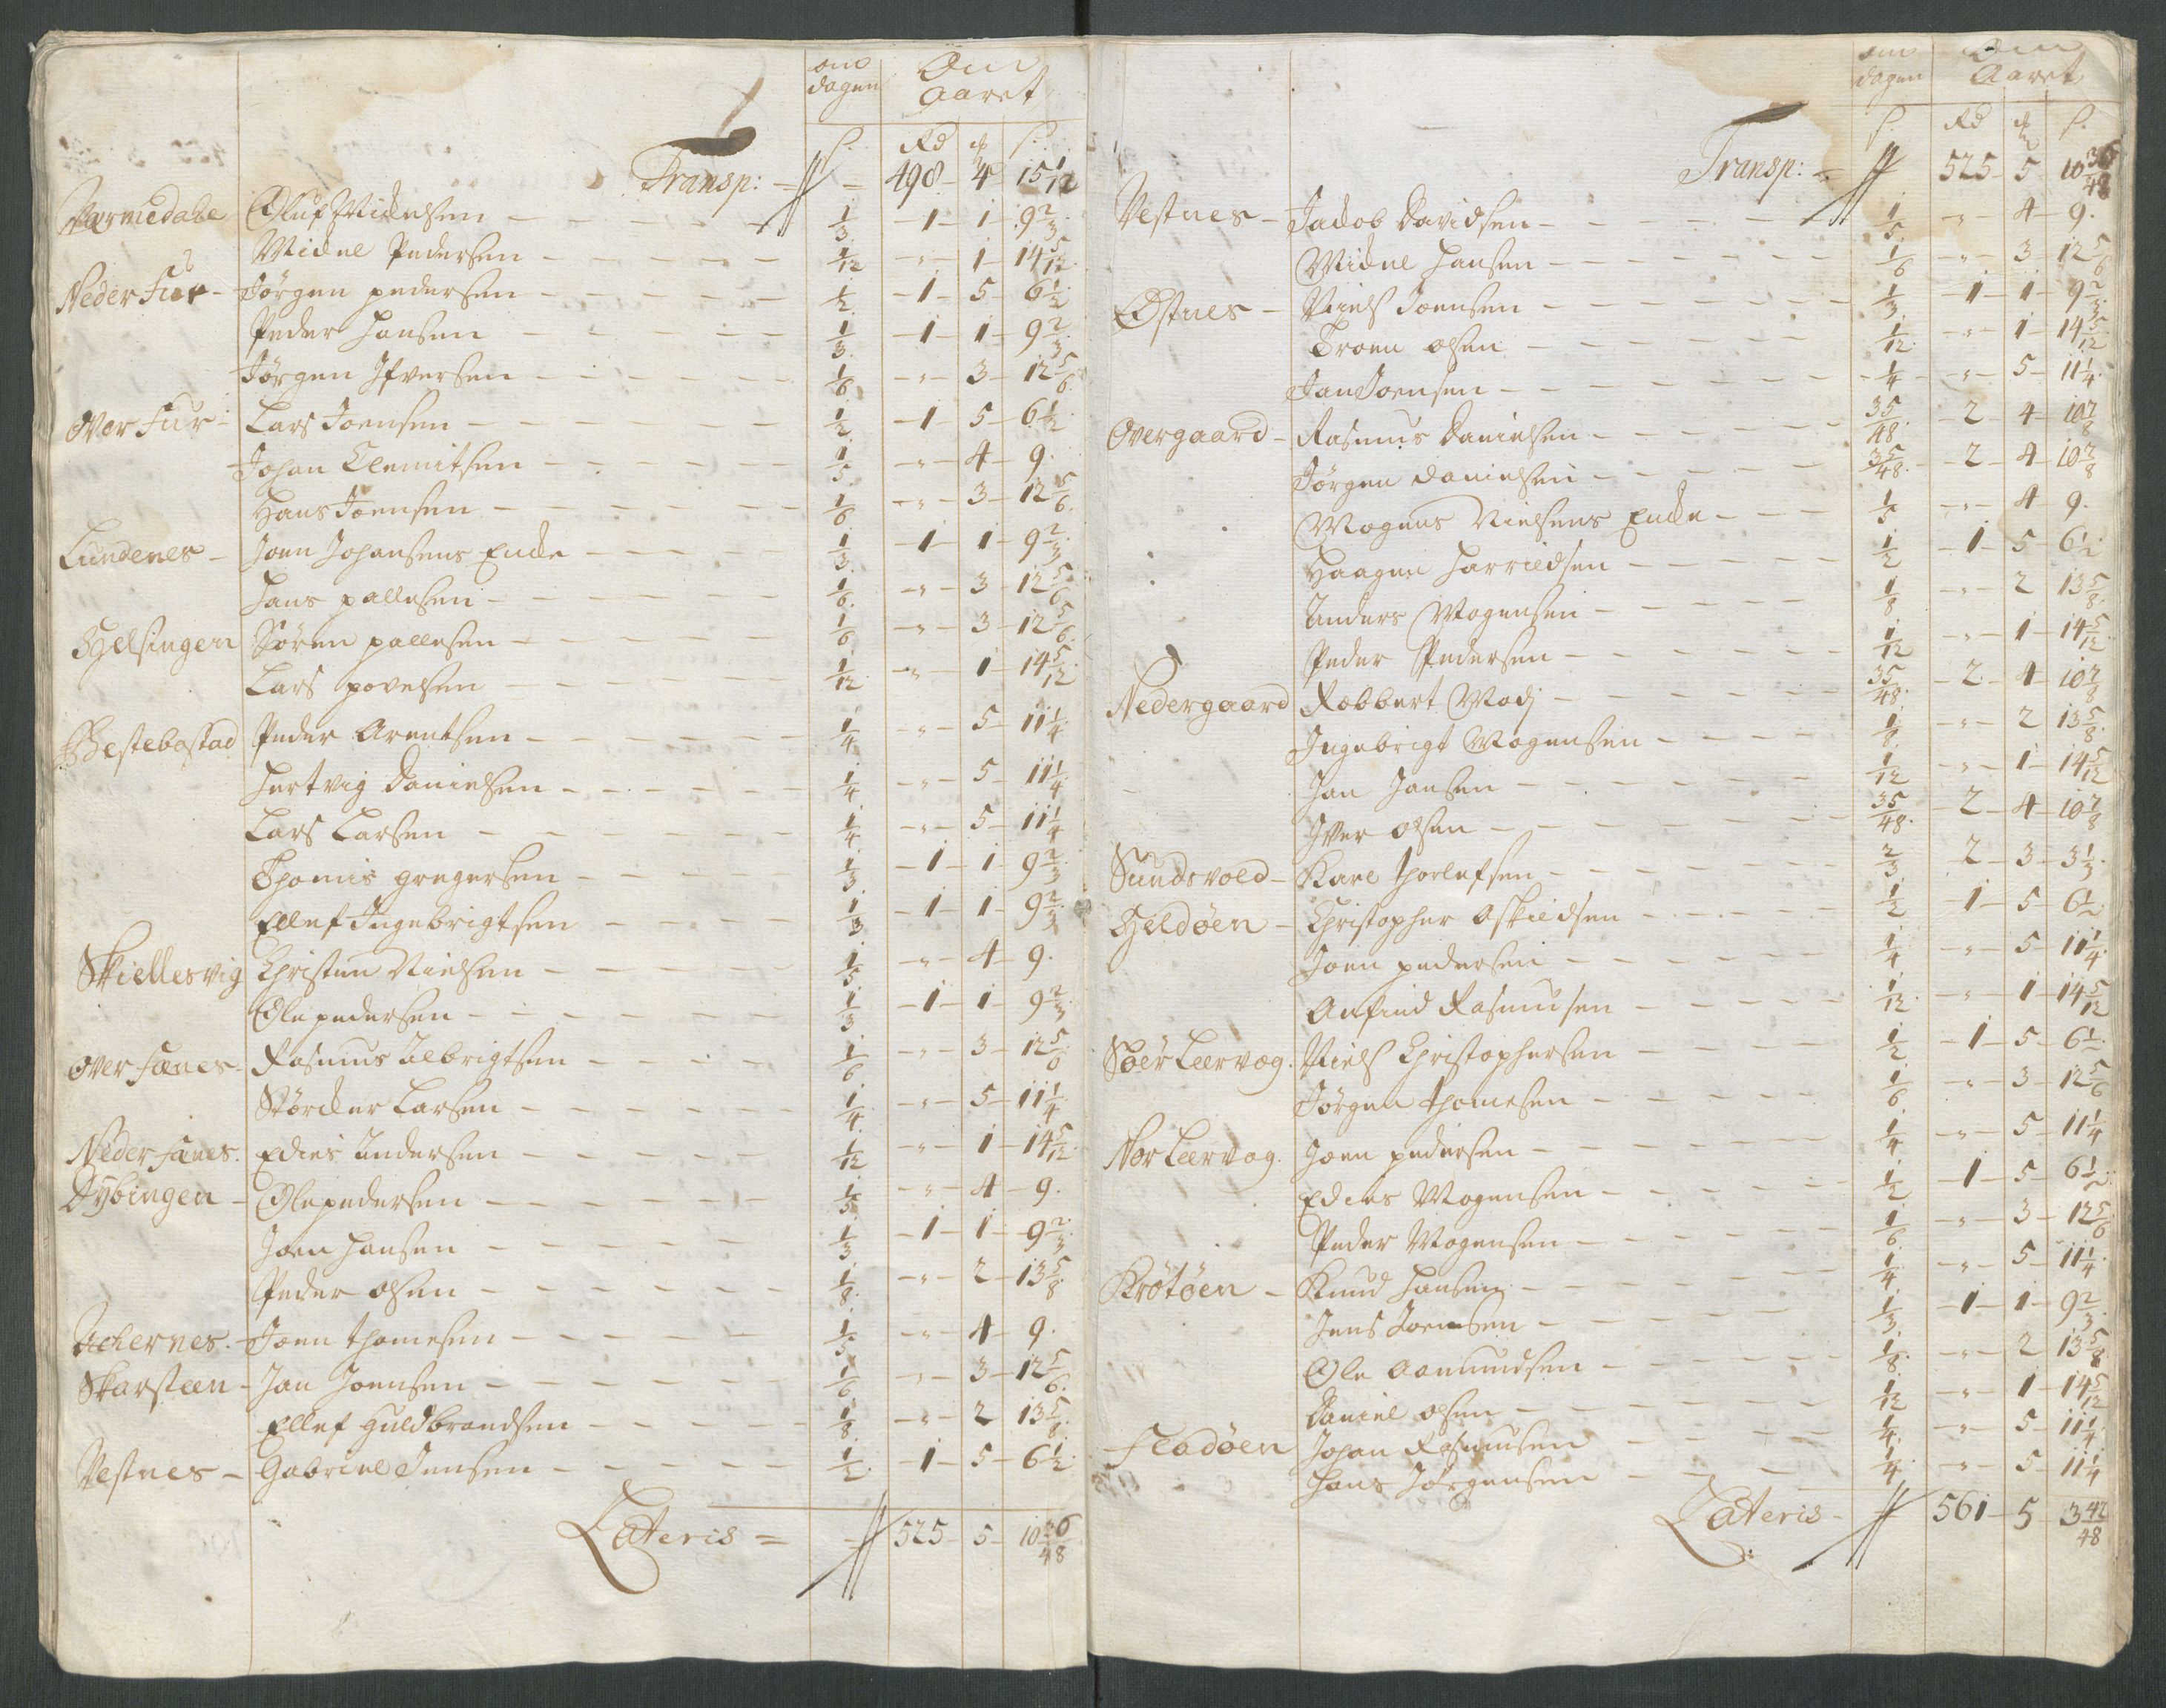 om dagen | Om Aaret
s. | Rd | ₰ | s.
Transp: = — 498 — 4 — 15 1/12
Varmedahl Oluf Michelsen — 1/3 — 1 — 1 — 9 2/3
Michel Pedersen — 1/12 — " — 1 — 14 5/12
Neder Fur — Jørgen pedersen — 1/2 — 1 — 5 — 6 1/2
Peder Hansen — 1/3 — 1 — 1 — 9 2/3
Jørgen Ifversen — 1/6 — " — 3 — 12 5/6
Over Fur — Lars Joensen — 1/2 — 1 — 5 — 6 1/2
Johan Clemitsen — 1/5 — " — 4 — 9.
Hans Joensen — 1/6 — " — 3 — 12 5/6
Lundenes — Joen Johansens Encke — 1/3 — 1 — 1 — 9 2/3
Hans pallesen — 1/6 — " — 3 — 12 5/6
Helsingen Søren pallesen — 1/6 — " — 3 — 12 5/6
Lars povelsen — 1/12 — " — 1 — 14 5/12
Bestebostad Peder Arentsen — 1/4 — " — 5 — 11 1/4
Hertvig Danielsen — 1/4 — " — 5 — 11 1/4
Lars Larsen — 1/4 — " — 5 — 11 1/4
Thomis gregersen — 1/3 — 1 — 1 — 9 2/3
Ellef Ingebrigtsen — 1/3 — 1 — 1 — 9 2/3
Skiellesvig Christen Nielsen — 1/5 — " — 4 — 9.
Ole pedersen — 1/3 — 1 — 1 — 9 2/3
Over Fænes — Rasmus Albrigtsen — 1/6 — " — 3 — 12 5/6
Størcker Larsen — 1/4 — " — 5 — 11 1/4
Neder Fænes. Edies Andersen — 1/12 — " — 1 — 14 5/12
Dybingen — Ole pedersen — 1/5 — " — 4 — 9.
Joen Hansen — 1/3 — 1 — 1 — 9 2/3
Peder olsen — 1/8 — " — 2 — 13 5/8
Achernes. — Joen thomesen — 1/5 — " — 4 — 9.
Skarsteen — Jan Joensen — 1/6 — " — 3 — 12 5/6
Ellef Guldbrandsen — 1/8 — " — 2 — 13 5/8
Vestnes — Gabriel Jensen — 1/2 — 1 — 5 — 6 1/2
Lateris = — 525 — 5 — 10 36/48
om dagen | Om Aaret
s. | Rd | ₰ | s.
Transp: = 525 — 5 — 10 36/48
Vestnes — Jacob Davidsen — 1/5 — " — 4 — 9.
Michel Hansen — 1/6 — " — 3 — 12 5/6
Østnes — Niels Joensen — 1/3 — 1 — 1 — 9 2/3
Troen olsen — 1/12 — " — 1 — 14 5/12
Jan Joensen — 1/4 — " — 5 — 11 1/4
Overgaard — Rasmus Danielsen — 35/48 — 2 — 4 — 10 7/8
Jørgen Danielsen — 35/48 — 2 — 4 — 10 7/8
Mogens Nielsens Encke — 1/5 — " — 4 — 9.
Haagen Harrildsen — 1/2 — 1 — 5 — 6 1/2
Anders Mogensen — 1/8 — " — 2 — 13 5/8
Peder Pedersen — 1/12 — " — 1 — 14 5/12
Nedergaard Robbert Modj — 35/48 — 2 — 4 — 10 7/8
Ingebrigt Mogensen — 1/8 — " — 2 — 13 5/8
Jan Jansen — 1/12 — " — 1 — 14 5/12
Iver olsen — 35/48 — 2 — 4 — 10 7/8
Sundsvold — Karl thorlefsen — 2/3 — 2 — 3 — 3 1/3
Heldøen — Christopher Oskildsen — 1/2 — 1 — 5 — 6 1/2
Joen pedersen — 1/4 — " — 5 — 11 1/4
Anfind Rasmusen — 1/12 — " — 1 — 14 5/12
Søer Leervog. Niels Christophersen — 1/2 — 1 — 5 — 6 1/2
Jørgen thomesen — 1/6 — " — 3 — 12 5/6
Nor Leervog. Joen pedersen — 1/4 — " — 5 — 11 1/4
Edies Mogensen — 1/2 — 1 — 5 — 6 1/2
Peder Mogensen — 1/6 — " — 3 — 12 5/6
Krøtøen — Knud Hansen — 1/4 — " — 5 — 11 1/4
Jens Joensen — 1/3 — 1 — 1 — 9 2/3
Ole Aamundsen — 1/8 — " — 2 — 13 5/8
Daniel olsen — 1/12 — " — 1 — 14 5/12
Fladøen Johan Rasmusen — 1/4 — " — 5 — 11 1/4
Hans Jørgensen — 1/4 — " — 5 — 11 1/4
Lateris — 561 — 5 — 3 42/48